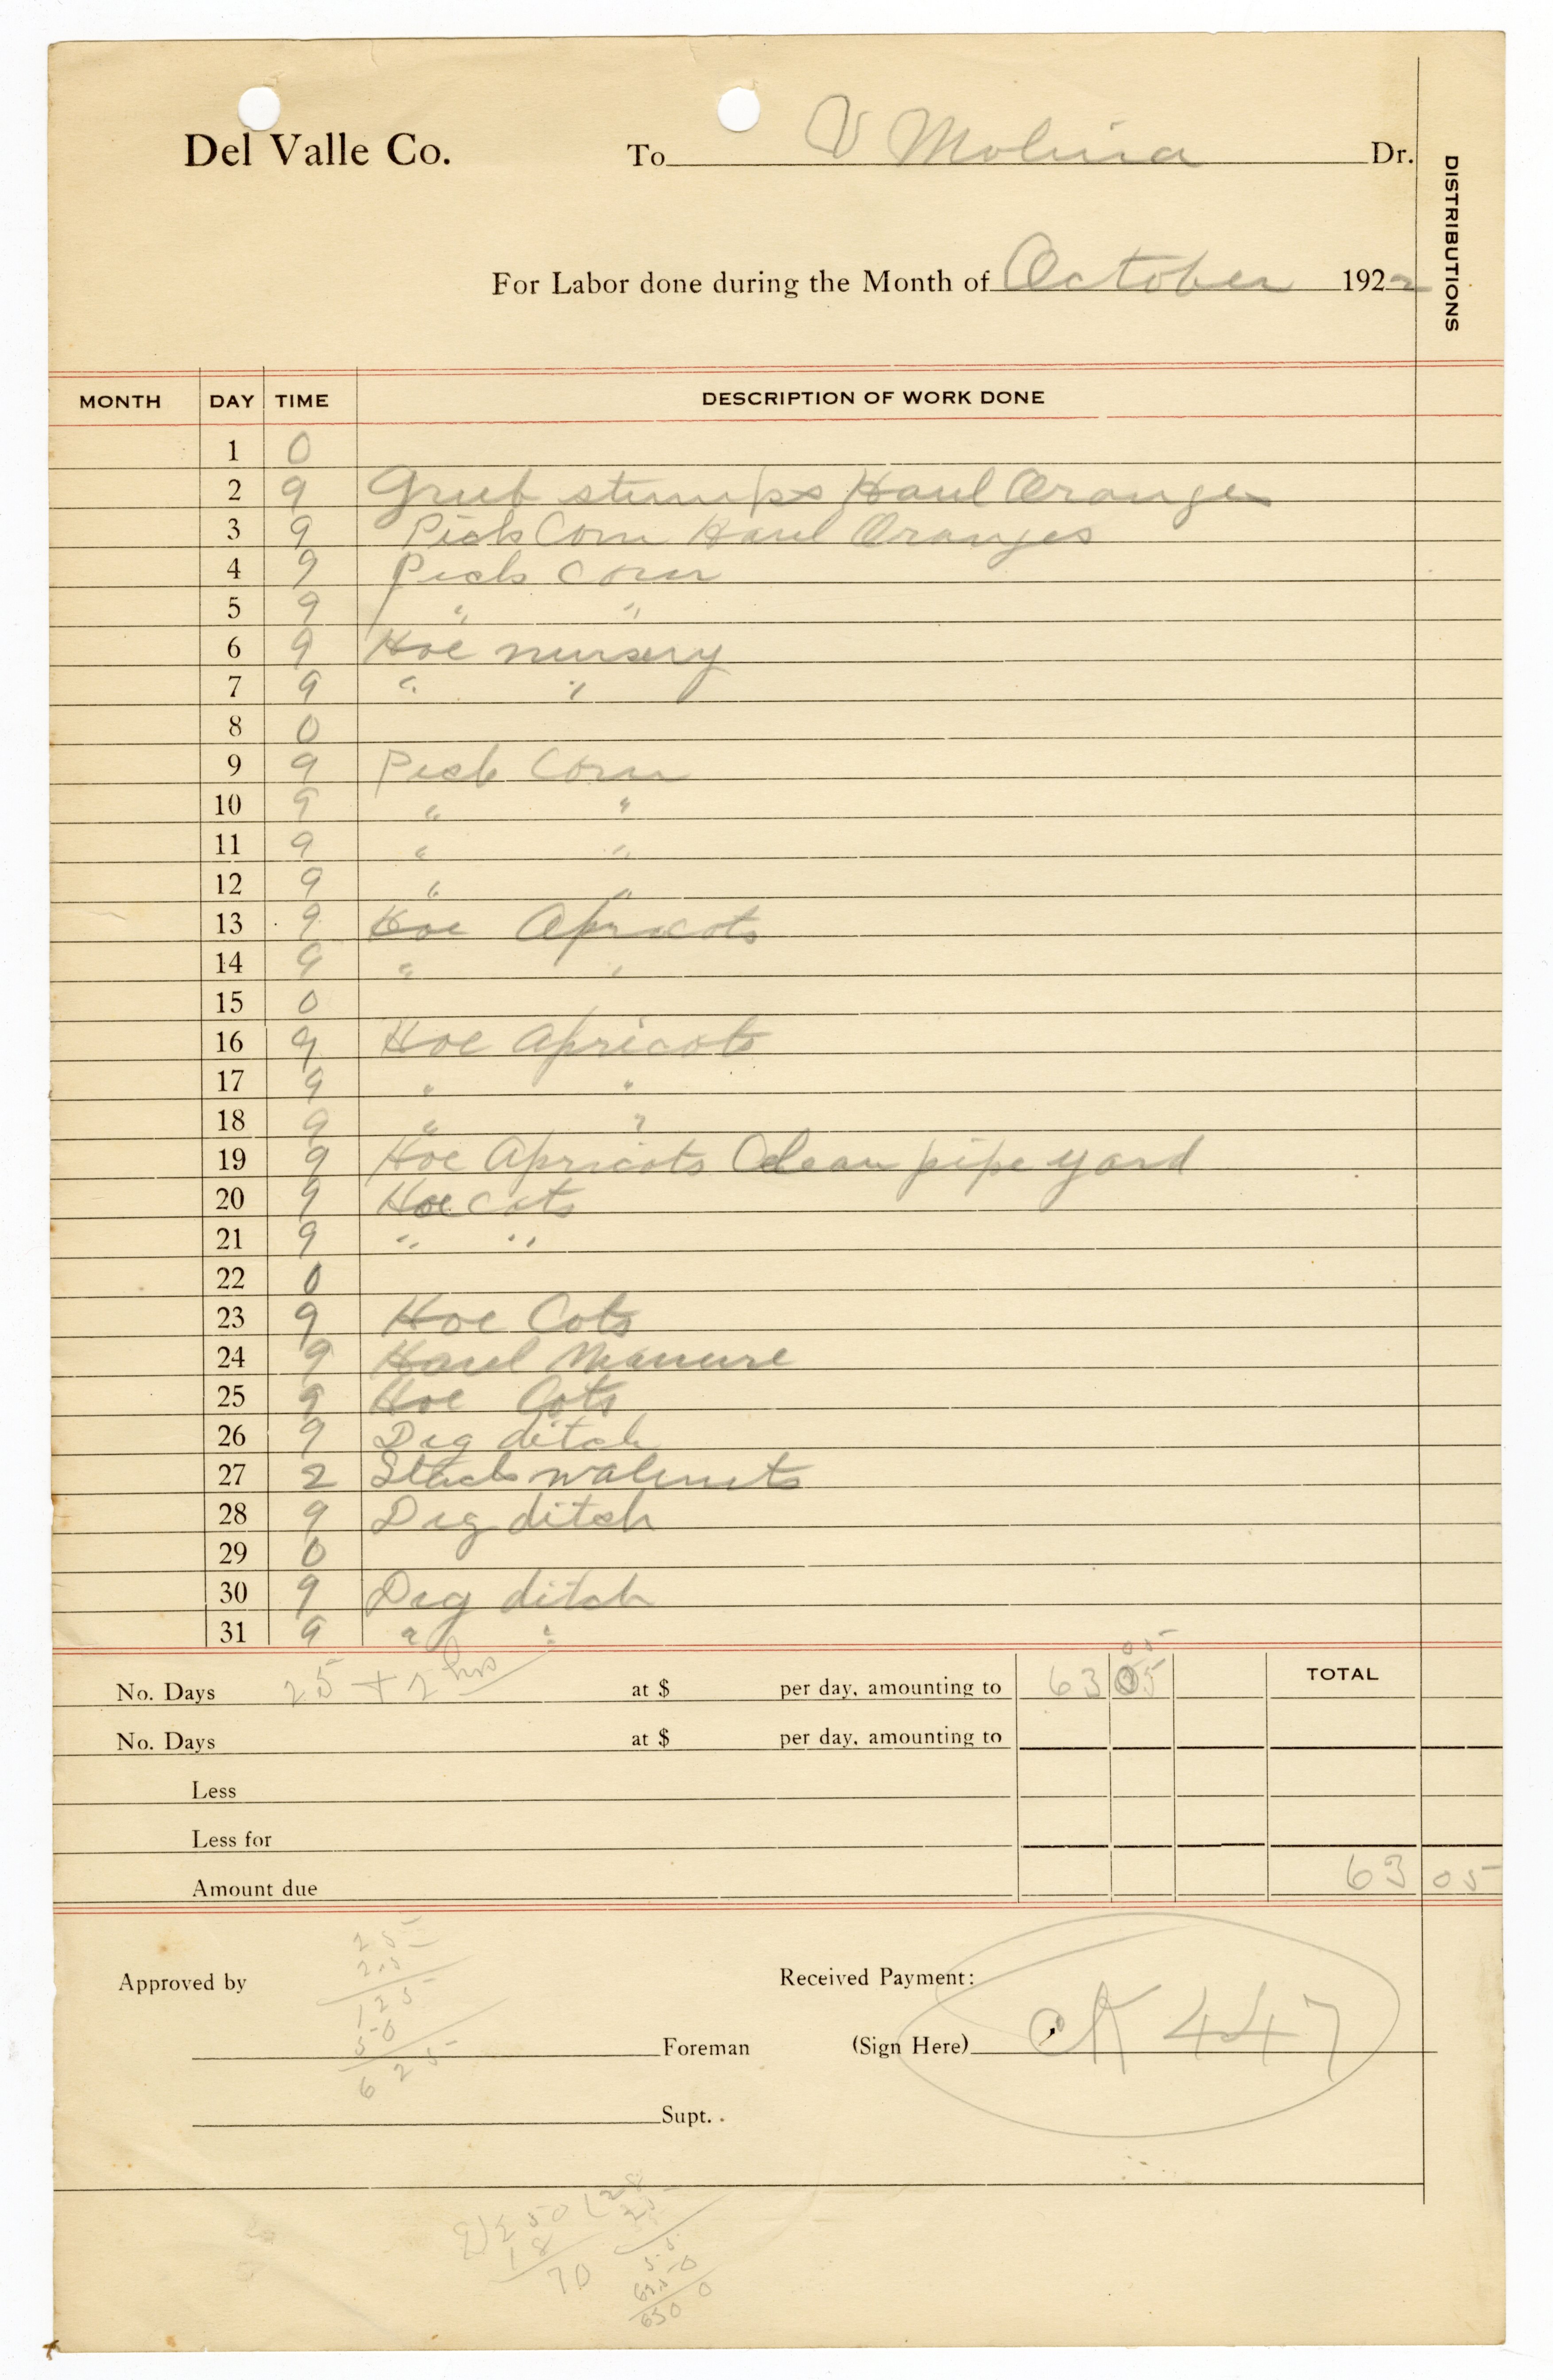 Del Valle Co. To V Molina Dr.
DISTRIBUTIONS
For Labor done during the Month of October 1922
MONTH DAY TIME DESCRIPTION OF WORK DONE
1 0
2 9 Grub stumps Haul Oranges
3 9 Pick Corn Haul Oranges
4 9 Pick Corn
5 9 " "
6 9 Hoe nursery
7 9 " "
8 0
9 9 Pick Corn
10 9 " "
11 9 " "
12 9 " "
13 9 Hoe Apricots
14 9 " "
15 0
16 9 Hoe Apricots
17 9 " "
18 9 " "
19 9 Hoe Apricots Clean pipe yard
20 9 Hoe cots
21 9 " "
22 0
23 9 Hoe Cots
24 9 Haul Manure
25 9 Hoe Cots
26 9 Dig ditch
27 2 Stack walnuts
28 9 Dig ditch
29 0
30 9 Dig ditch
31 9 " "
No. Days 25 + 2 hrs at $ per day, amounting to 63 05 TOTAL
No. Days at $ per day, amounting to
Less
Less for
Amount due 63 05
25
2.5
125
50
625
Approved by Received Payment:
Foreman (Sign Here) CK 447
Supt.
9)250(28
18
70